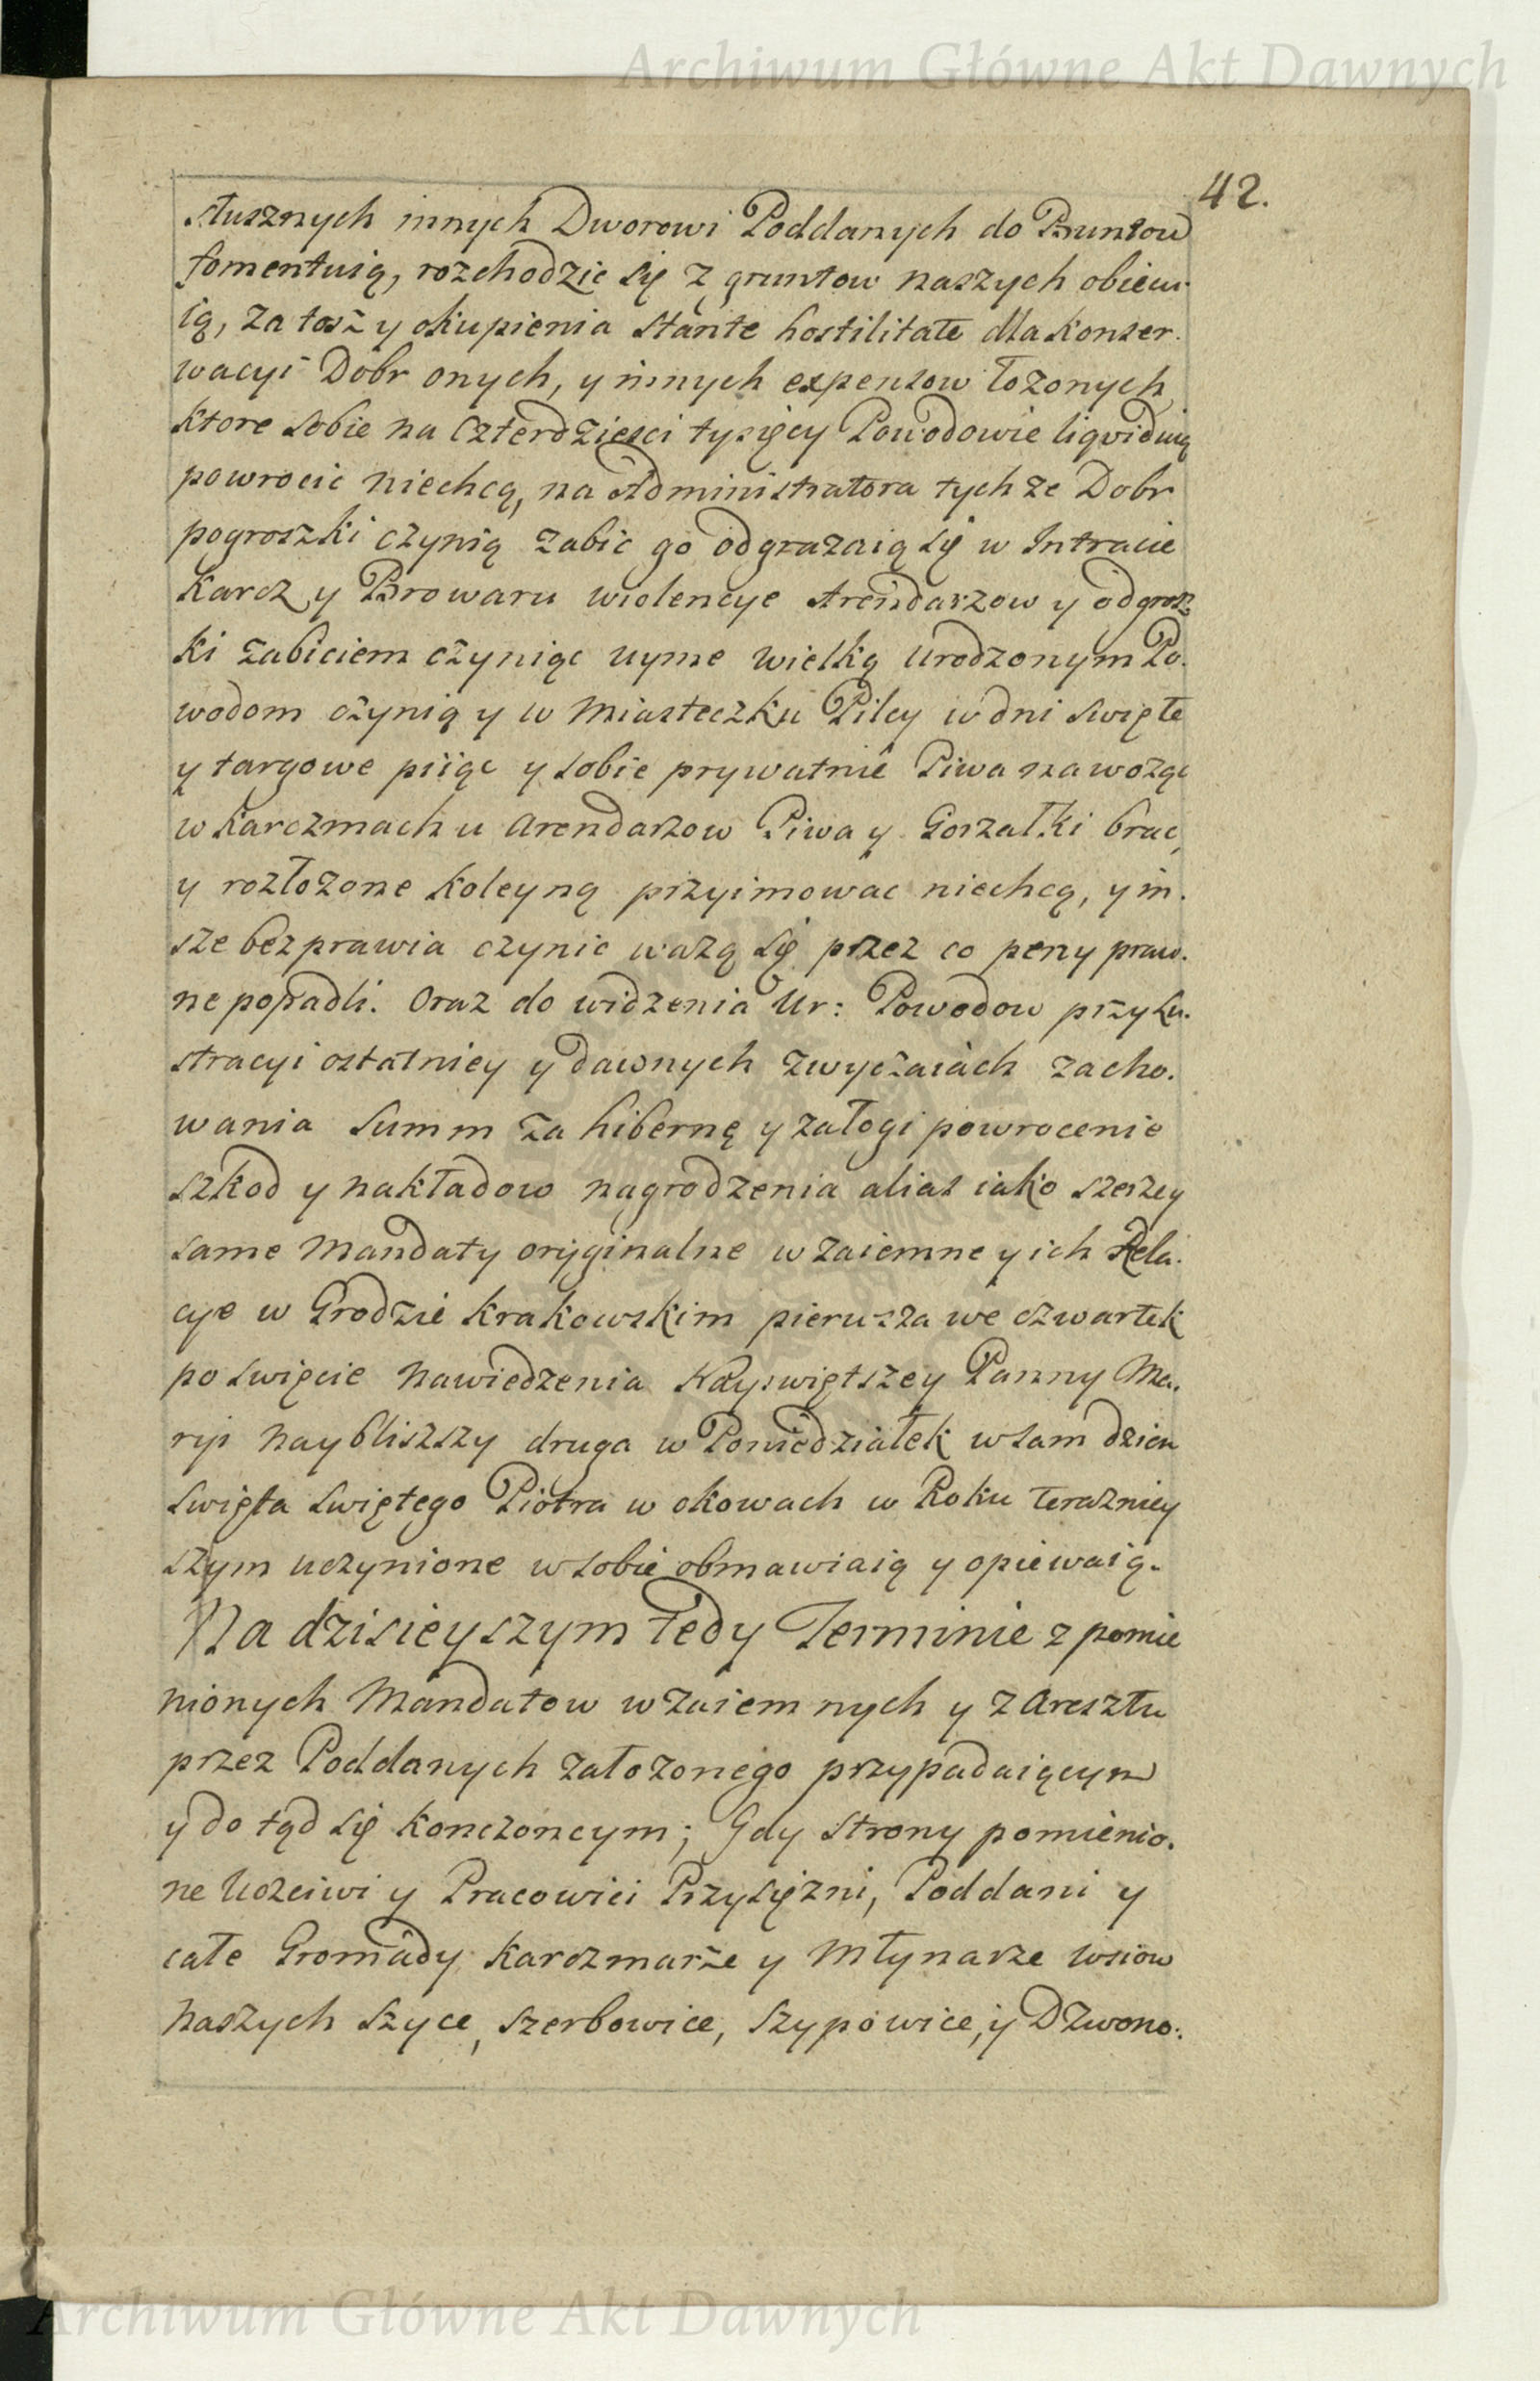 Archiwum Główne Akt Dawnych
42.
słusznych innych Dworowi Poddanych do Buntow
fomentuią, rozchodzic się z gruntow naszych obiecu-
ią, za tosz y okupienia stante hostilitate dla konser-
wacyi Dobr onych, y innych expensow łozonych
ktore sobie na czterdziesci tysięcy Powodowie liqviduią
powrocic niechcą, na Administratora tych ze Dobr
pogroszki czynią zabic go odgrazaią się w Intracie
Karcz y Browaru wiolencye Arendarzow y odgrosz
ki zabiciem czyniąc uyme wielką Urodzonym Po-
wodom czynią y w Miasteczku Pilcy w dni swięte
y targowe piiąc y sobie prywatnie Piwa nawoząc
w karczmach u Arendarzow Piwa y Gorzałki brac,
y rozłozone koleyną przyimowac niechcą, y in-
sze bezprawia czynic wazą się przez co peny praw-
ne popadli. Oraz do widzenia Ur: Powodow przy Lu-
stracyi ostatniey y dawnych zwyczaiach zacho-
wania Summ za hibernę y załogi powrocenie
szkod y nakładow nagrodzenia alias iako szerzey
same Mandaty oryginalne wzaiemne y ich Rela-
cye w Grodzie Krakowskim pierwsza we czwartek
po swięcie Nawiedzenia Nayswiętszey Panny Ma-
ryi naybliszszy druga w Poniedziałek w sam dzien
swięta swiętego Piotra w okowach w Roku terazniey
szym uczynione w sobie obmawiaią y opiewaią.
Na dzisieyszym tedy Terminie z pomie
nionych Mandatow wzaiemnych y z Aresztu
przez Poddanych załozonego przypadaiącym
y do tąd się konczoncym; Gdy strony pomienio-
ne Uczciwi y Pracowici Przysięzni, Poddani y
całe Gromady Karczmarze y Młynarze wsiow
Naszych Szyce, Szerbowice, Szypowice, y Dzwono-
Archiwum Główne Akt Dawnych